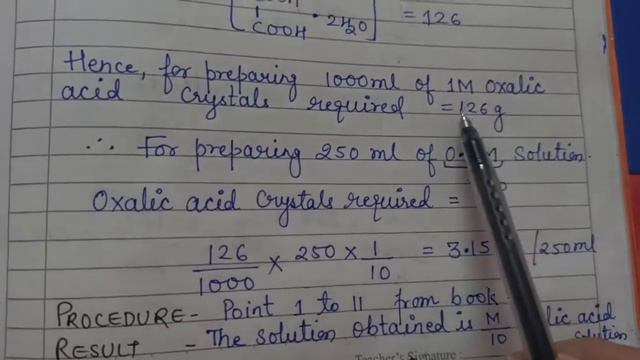 COOH · 2H2O] = 126
Hence, for preparing 1000ml of 1M oxalic
acid crystals required = 126g
∴ For preparing 250 ml of 0. M solution.
Oxalic acid crystals required =
126/1000 × 250 × 1/10 = 3.15 /250ml
PROCEDURE - Point 1 to 11 from book
RESULT - The solution obtained is M/10 lic acid
solution
Teacher's Signature :